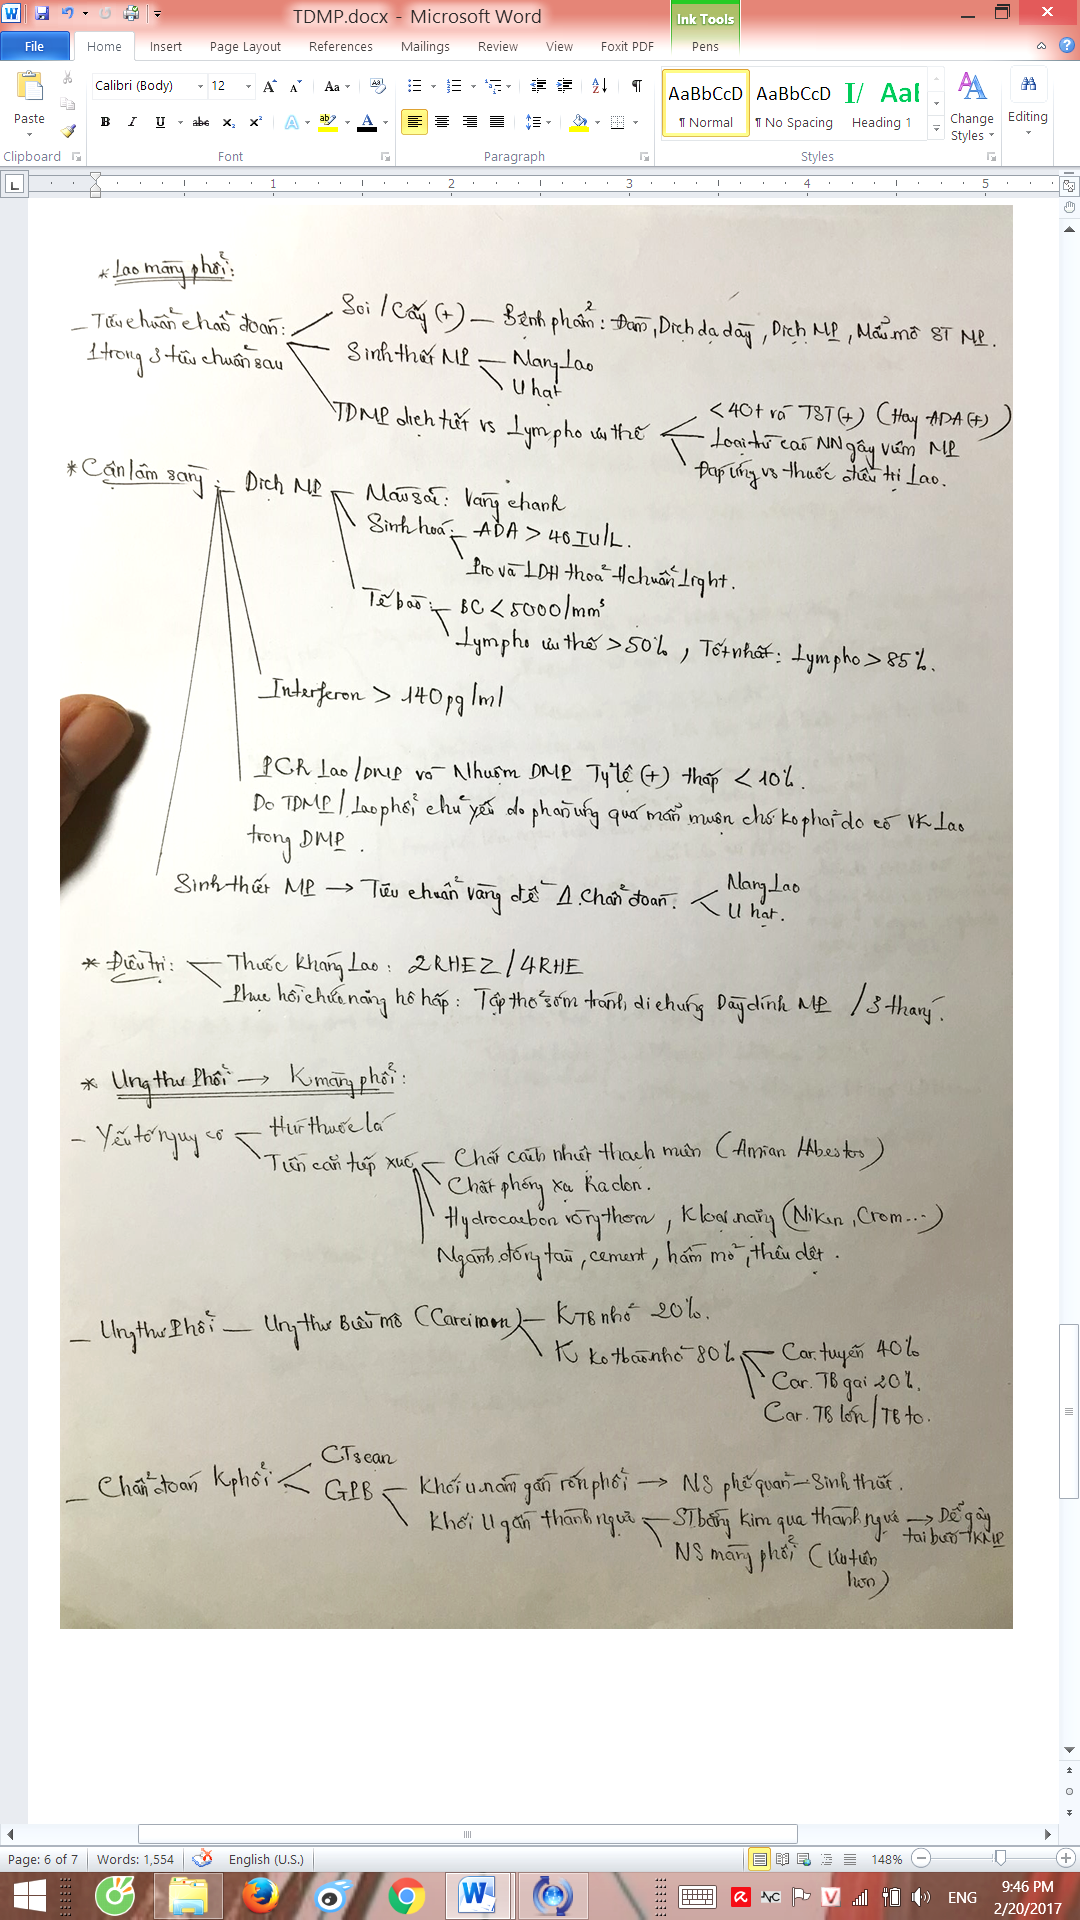 TDMP.docx - Microsoft Word
Ink Tools
File Home Insert Page Layout References Mailings Review View Foxit PDF Pens
Calibri (Body) 12
AaBbCcD AaBbCcD I/ AaI
Paste
¶ Normal ¶ No Spacing Heading 1
Change Styles
Editing
Clipboard Font Paragraph Styles
1 2 3 4 5
* Lao màng phổi:
- Tiêu chuẩn chẩn đoán:
1 trong 3 tiêu chuẩn sau
Soi / Cấy (+) - Bệnh phẩm: Đàm, Dịch dạ dày, Dịch MP, Mẫu mô ST MP.
Sinh thiết MP
Nang Lao
U hạt
TDMP dịch tiết vs Lympho ưu thế
<40t và TST(+) (Hay ADA(+))
Loại trừ các NN gây viêm MP
Đáp ứng vs thuốc điều trị Lao.
* Cận lâm sàng:
- Dịch MP
Màu sắc: Vàng chanh
Sinh hoá: - ADA > 40 IU/L.
Pro và LDH thoả tchuẩn Light.
Tế bào: - BC < 5000/mm³
Lympho ưu thế > 50%, Tốt nhất: Lympho > 85%.
Interferon > 140pg/ml
PCR Lao/DMP và Nhuộm DMP Tỷ lệ (+) thấp < 10%.
Do TDMP/Lao phổi chủ yếu do phản ứng quá mẫn muộn chứ ko phải do có VK Lao
trong DMP.
Sinh thiết MP → Tiêu chuẩn vàng để Δ. Chẩn đoán.
Nang Lao
U hạt.
* Điều trị:
Thuốc kháng Lao: 2RHEZ/4RHE
Phục hồi chức năng hô hấp: Tập thở sớm tránh di chứng Dày dính MP /3 tháng.
* Ung thư Phổi → K màng phổi:
- Yếu tố nguy cơ
Hút thuốc lá
Tiền căn tiếp xúc
Chất cách nhiệt thạch miên (Amian Abestos)
Chất phóng xạ Radon.
Hydrocacbon vòng thơm, K loại nặng (Niken, Crom...)
Ngành đóng tàu, cement, hầm mỏ, thêu dệt.
- Ung thư Phổi - Ung thư Biểu mô (Carcinom)
K TB nhỏ 20%.
K ko tbào nhỏ 80%
Car. tuyến 40%
Car. TB gai 20%.
Car. TB lớn/TB to.
- Chẩn đoán K phổi
CTscan
GPB
Khối u nằm gần rốn phổi → NS phế quản - Sinh thiết.
Khối U gần thành ngực
ST bằng kim qua thành ngực → Dễ gây
tai biến TKMP
NS màng phổi (Ưu tiên
hơn)
Page: 6 of 7 Words: 1,554 English (U.S.) 148%
ENG 9:46 PM
2/20/2017